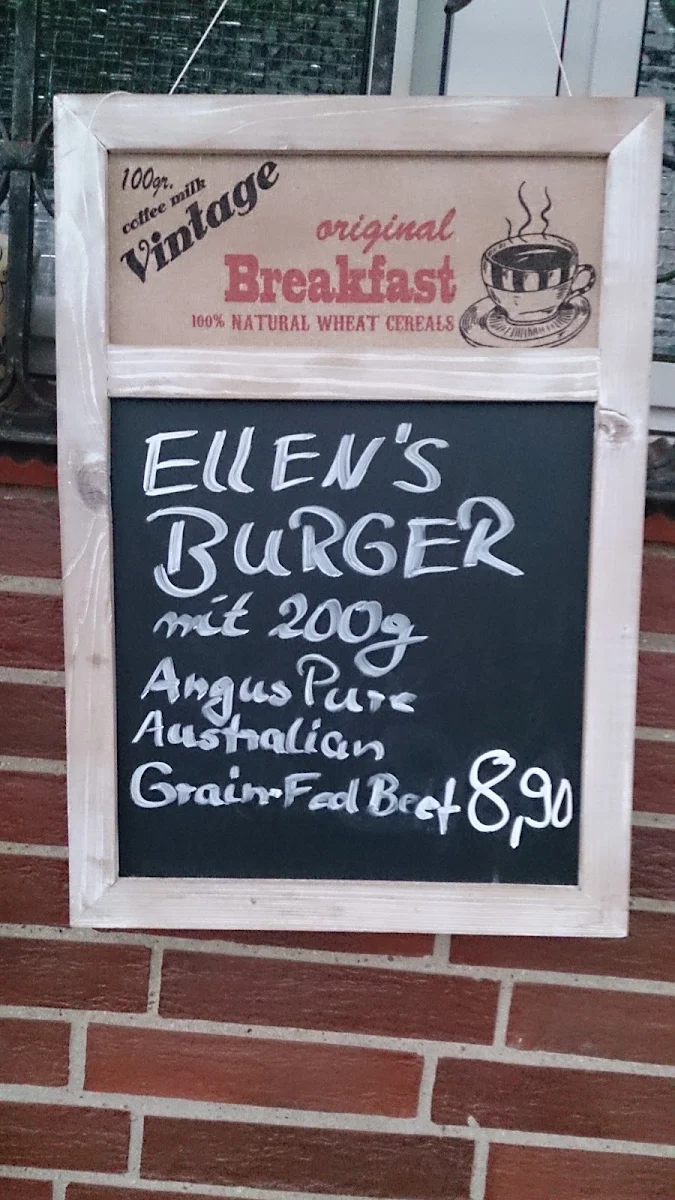 100gr.
coffee milk
Vintage
original
Breakfast
100% NATURAL WHEAT CEREALS
EllEN'S
BURGER
mit 200g
Angus Pure
Australian
Grain-Fed Beef 8,90